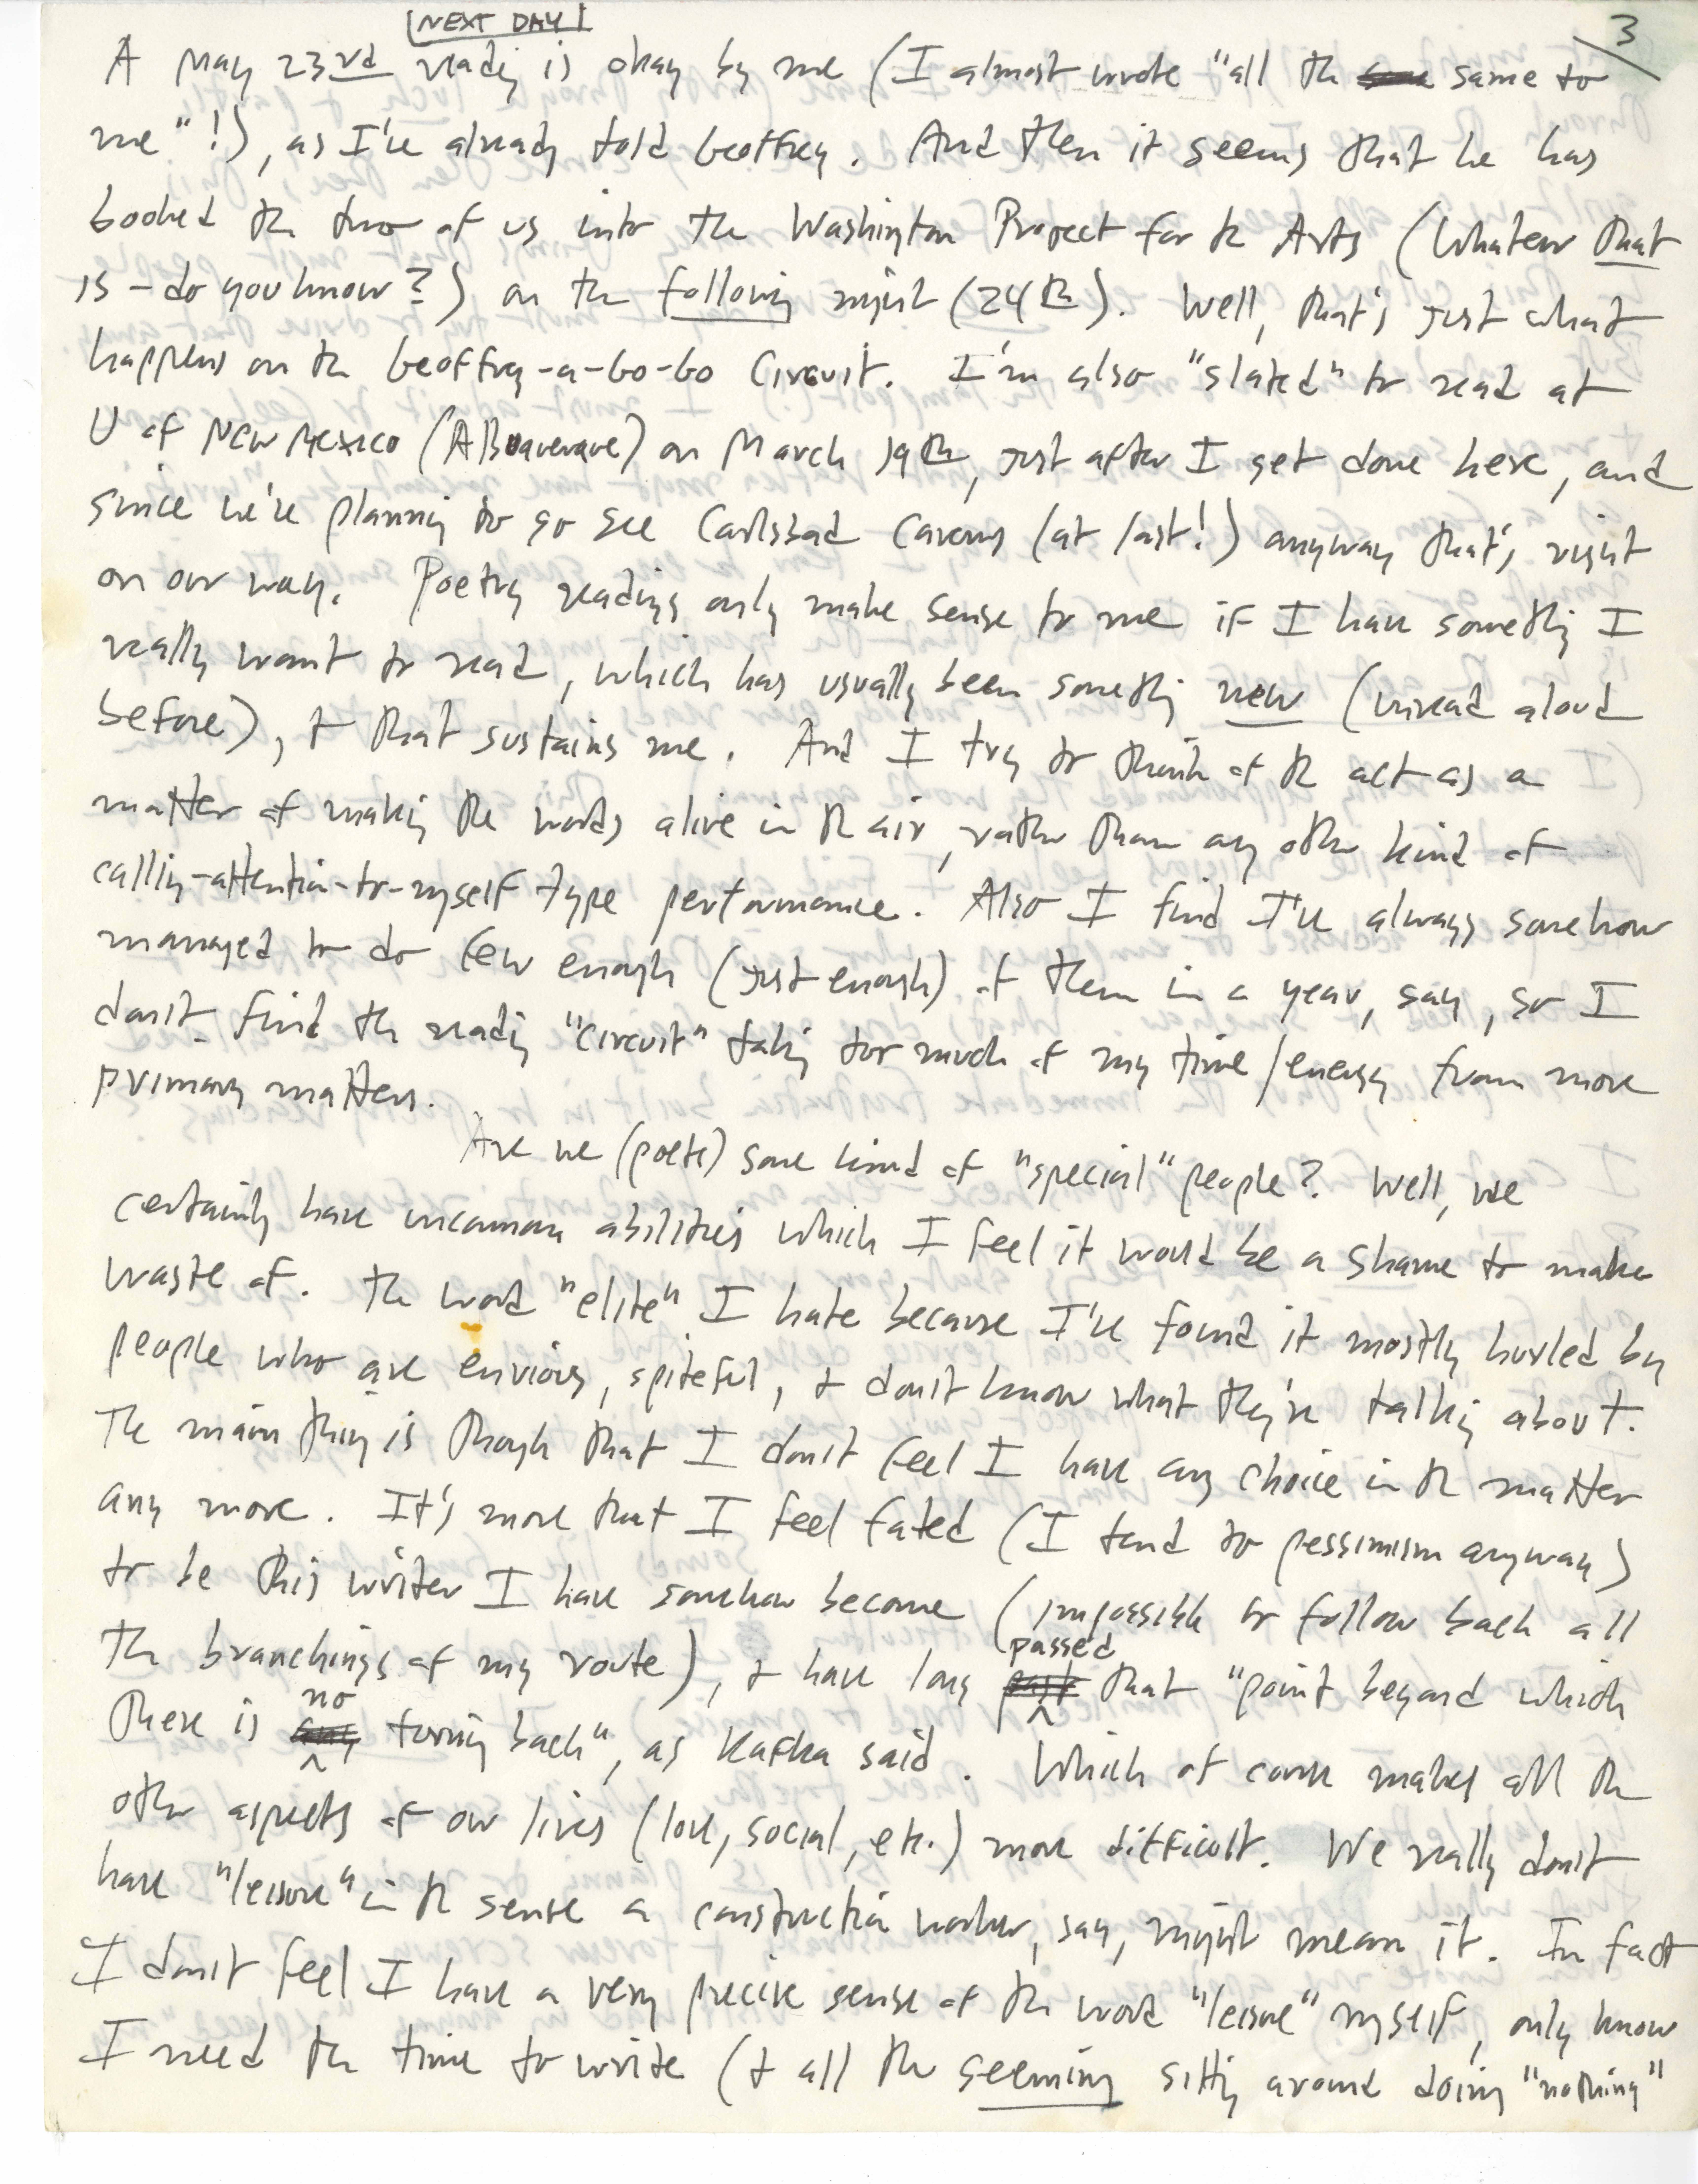 NEXT DAY
3
A May 23rd reading is okay by me (I almost wrote "all the same to
me"!), as I've already told Geoffrey. And then it seems that he has
booked the two of us into the Washington Project for the Arts (whatever that
is – do you know?) on the following night (24th). Well, that's just what
happens on the Geoffrey-a-Go-Go Circuit. I'm also "slated" to read at
U of New Mexico (Albuquerque) on March 19th, just after I get done here, and
since we're planning to go see Carlsbad Caverns (at last!) anyway that's right
on our way. Poetry readings only make sense to me if I have something I
really want to read, which has usually been something new (unread aloud
before), + that sustains me. And I try to think of the act as a
matter of making the words alive in the air, rather than any other kind of
calling-attention-to-myself type performance. Also I find I've always somehow
managed to do few enough (just enough) of them in a year, say, so I
don't find the reading "circuit" taking too much of my time/energy from more
primary matters.
Are we (poets) some kind of "special" people? Well, we
certainly have uncommon abilities which I feel it would be a shame to make
waste of. The word "elite" I hate because I've found it mostly hurled by
people who are envious, spiteful, + don't know what they're talking about.
The main thing is though that I don't feel I have any choice in the matter
any more. It's more that I feel fated (I tend to pessimism anyway)
to be this writer I have somehow become (impossible to follow back all
the branchings of my route), + have long passed that "point beyond which
there is no turning back", as Kafka said. Which of course makes all the
other aspects of our lives (love, social, etc.) more difficult. We really don't
have "leisure" in the sense a construction worker, say, might mean it. In fact
I don't feel I have a very precise sense of the word "leisure" myself, only know
I need the time to write (+ all the seeming sitting around doing "nothing"